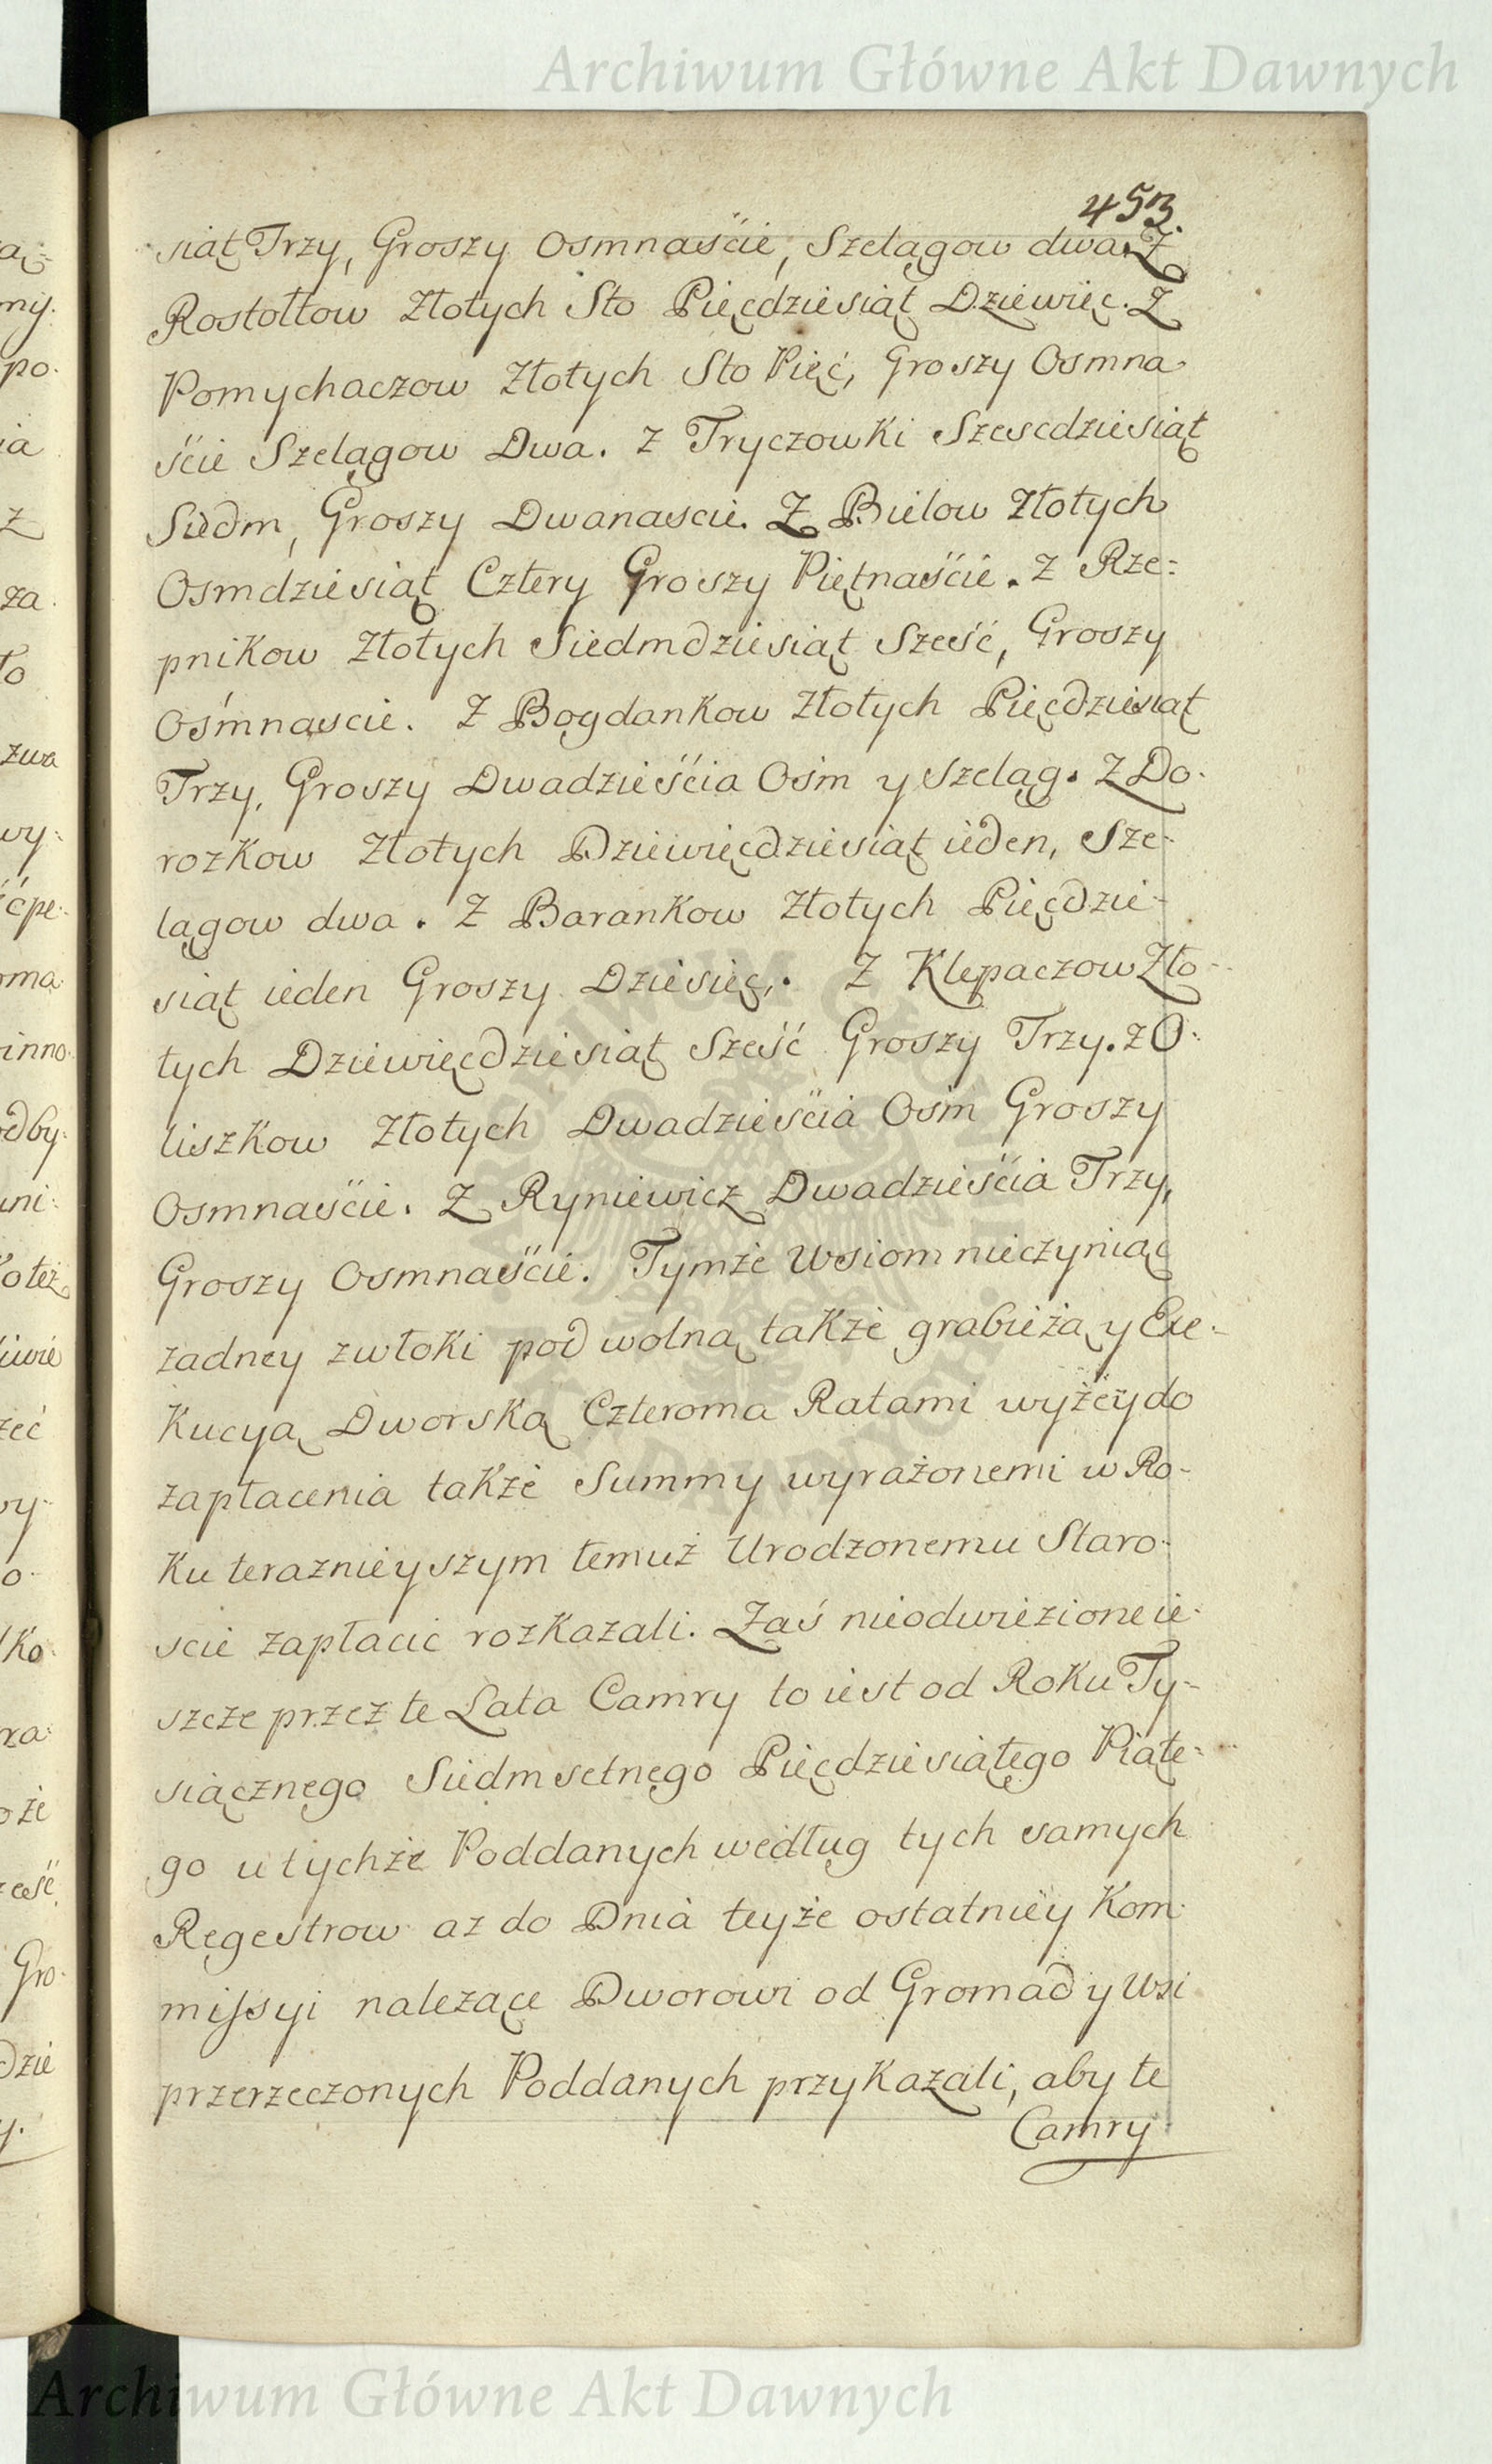 Archiwum Główne Akt Dawnych
453.
siąt Trzy, Groszy Osmnaście, Szelągow dwa. Z
Rostołtow Złotych Sto Pięcdziesiąt Dziewięc. Z
Pomychaczow Złotych Sto Pięć, Groszy Osmna
ście Szelągow Dwa. Z Tryczowki Szescdziesiąt
Siedm, Groszy Dwanascie. Z Bielow Złotych
Osmdziesiąt Cztery Groszy Piętnaście. Z Rze=
pnikow Złotych Siedmdziesiąt Sześć, Groszy
Ośmnascie. Z Bogdankow Złotych Pięcdziesiąt
Trzy, Groszy Dwadzieścia Ośm y Szeląg. Z Do-
rozkow Złotych Dziewięcdziesiąt ieden, Sze-
lągow dwa. Z Barankow Złotych Pięcdzie-
siąt ieden Groszy Dziesięc,. Z Klepaczow Zło-
tych Dziewięcdziesiąt Sześć Groszy Trzy. Z O-
liszkow Złotych Dwadzieścia Ośm Groszy
Osmnaście. Z Ryniewicz Dwadzieścia Trzy,
Groszy Osmnaście. Tymże Wsiom nieczyniąc
zadney zwłoki pod wolną także grabieżą y Exe-
kucyą Dworską Czteroma Ratami wyżey do
zapłacenia także Summy wyrażonemi w Ro-
ku teraznieyszym temuż Urodzonemu Staro-
scie zapłacic rozkazali. Zaś nieodwiezione ie-
szcze przez te Lata Camry to iest od Roku Ty-
siącznego Siedmsetnego Pięcdziesiątego Piąte-
go u tychże Poddanych według tych samych
Regestrow az do Dnia teyże ostatniey Kom-
missyi nalezące Dworowi od Gromad y Wsi
przerzeczonych Poddanych przykazali, aby te
Camry
Archiwum Główne Akt Dawnych